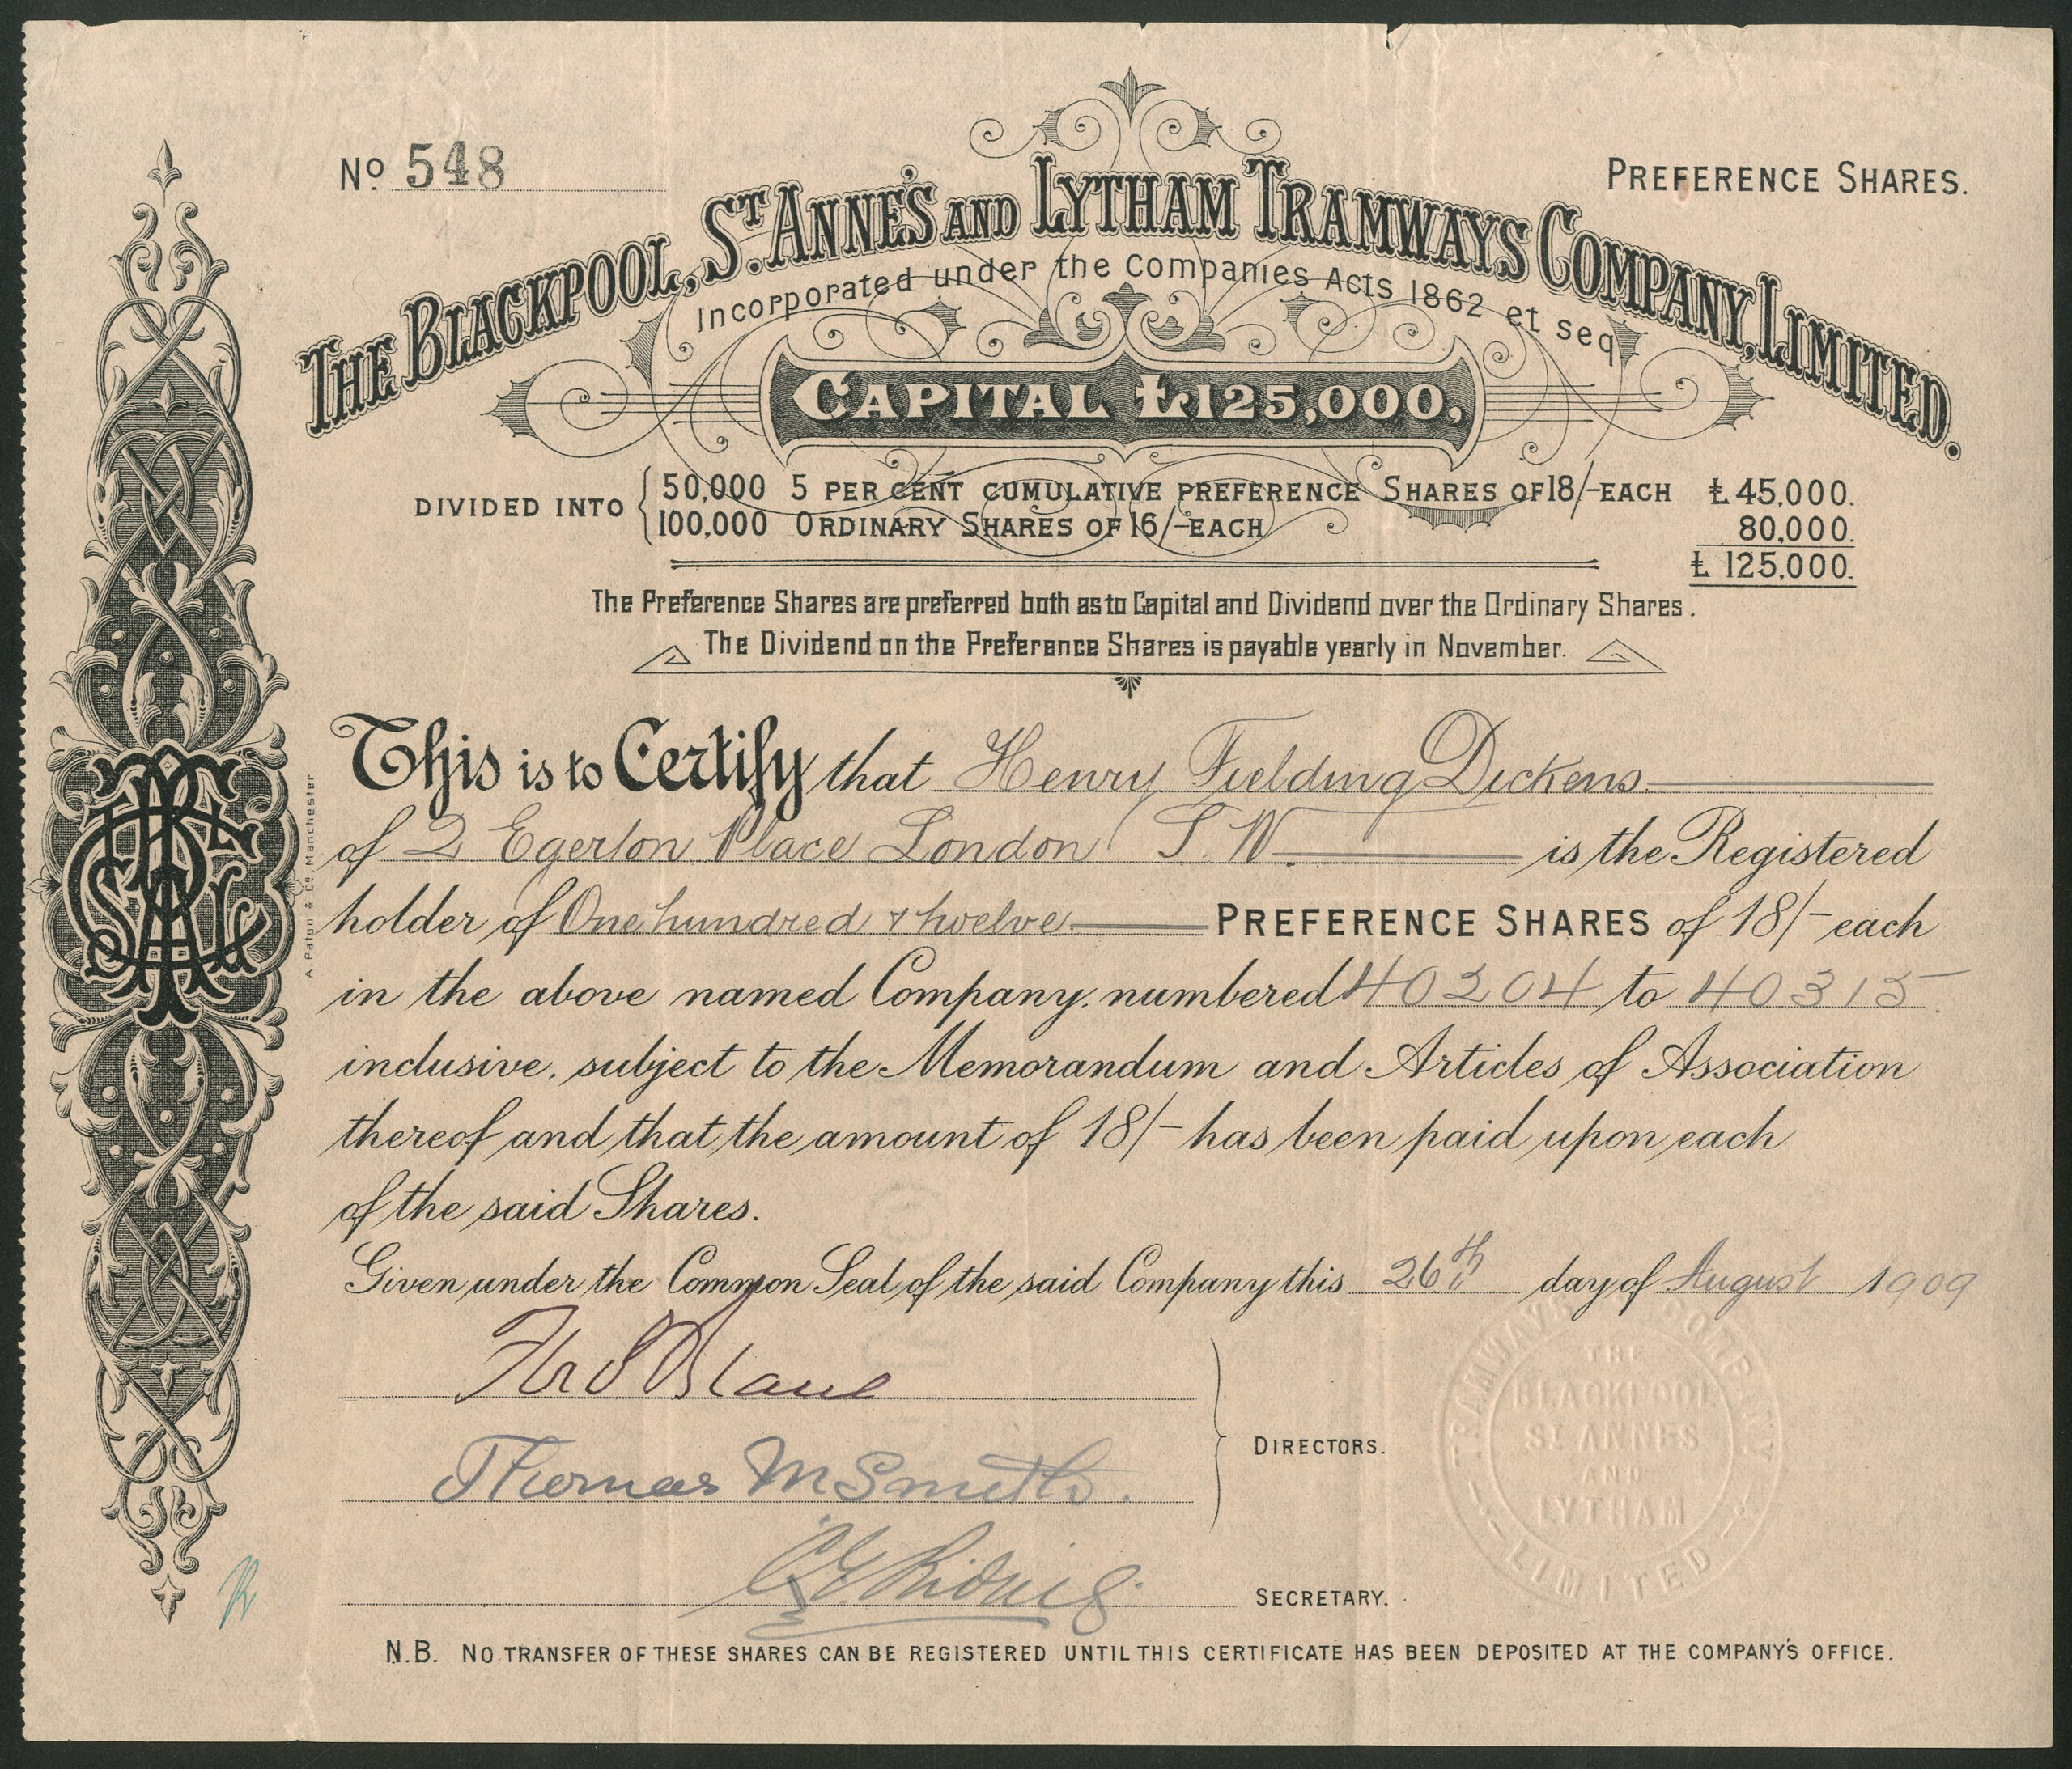 No. 548
PREFERENCE SHARES.
THE BLACKPOOL, ST. ANNE'S AND LYTHAM TRAMWAYS COMPANY, LIMITED.
Incorporated under the Companies Acts 1862 et seq
CAPITAL £125,000,
DIVIDED INTO
50,000 5 PER CENT CUMULATIVE PREFERENCE SHARES OF 18/- EACH £ 45,000.
100,000 ORDINARY SHARES OF 16/- EACH 80,000.
£ 125,000.
The Preference Shares are preferred both as to Capital and Dividend over the Ordinary Shares.
The Dividend on the Preference Shares is payable yearly in November.
This is to Certify that Henry Fielding Dickens
of 2 Egerton Place London S.W. is the Registered
holder of One hundred & twelve PREFERENCE SHARES of 18/- each
in the above named Company, numbered 40204 to 40315
inclusive, subject to the Memorandum and Articles of Association
thereof and that the amount of 18/- has been paid upon each
of the said Shares.
Given under the Common Seal of the said Company this 26th day of August 1909
Thomas M Smith.
DIRECTORS.
SECRETARY.
TRAMWAYS COMPANY
THE
BLACKPOOL
ST ANNES
AND
LYTHAM
LIMITED
N.B. NO TRANSFER OF THESE SHARES CAN BE REGISTERED UNTIL THIS CERTIFICATE HAS BEEN DEPOSITED AT THE COMPANY'S OFFICE.
A. Paton & Co. Manchester